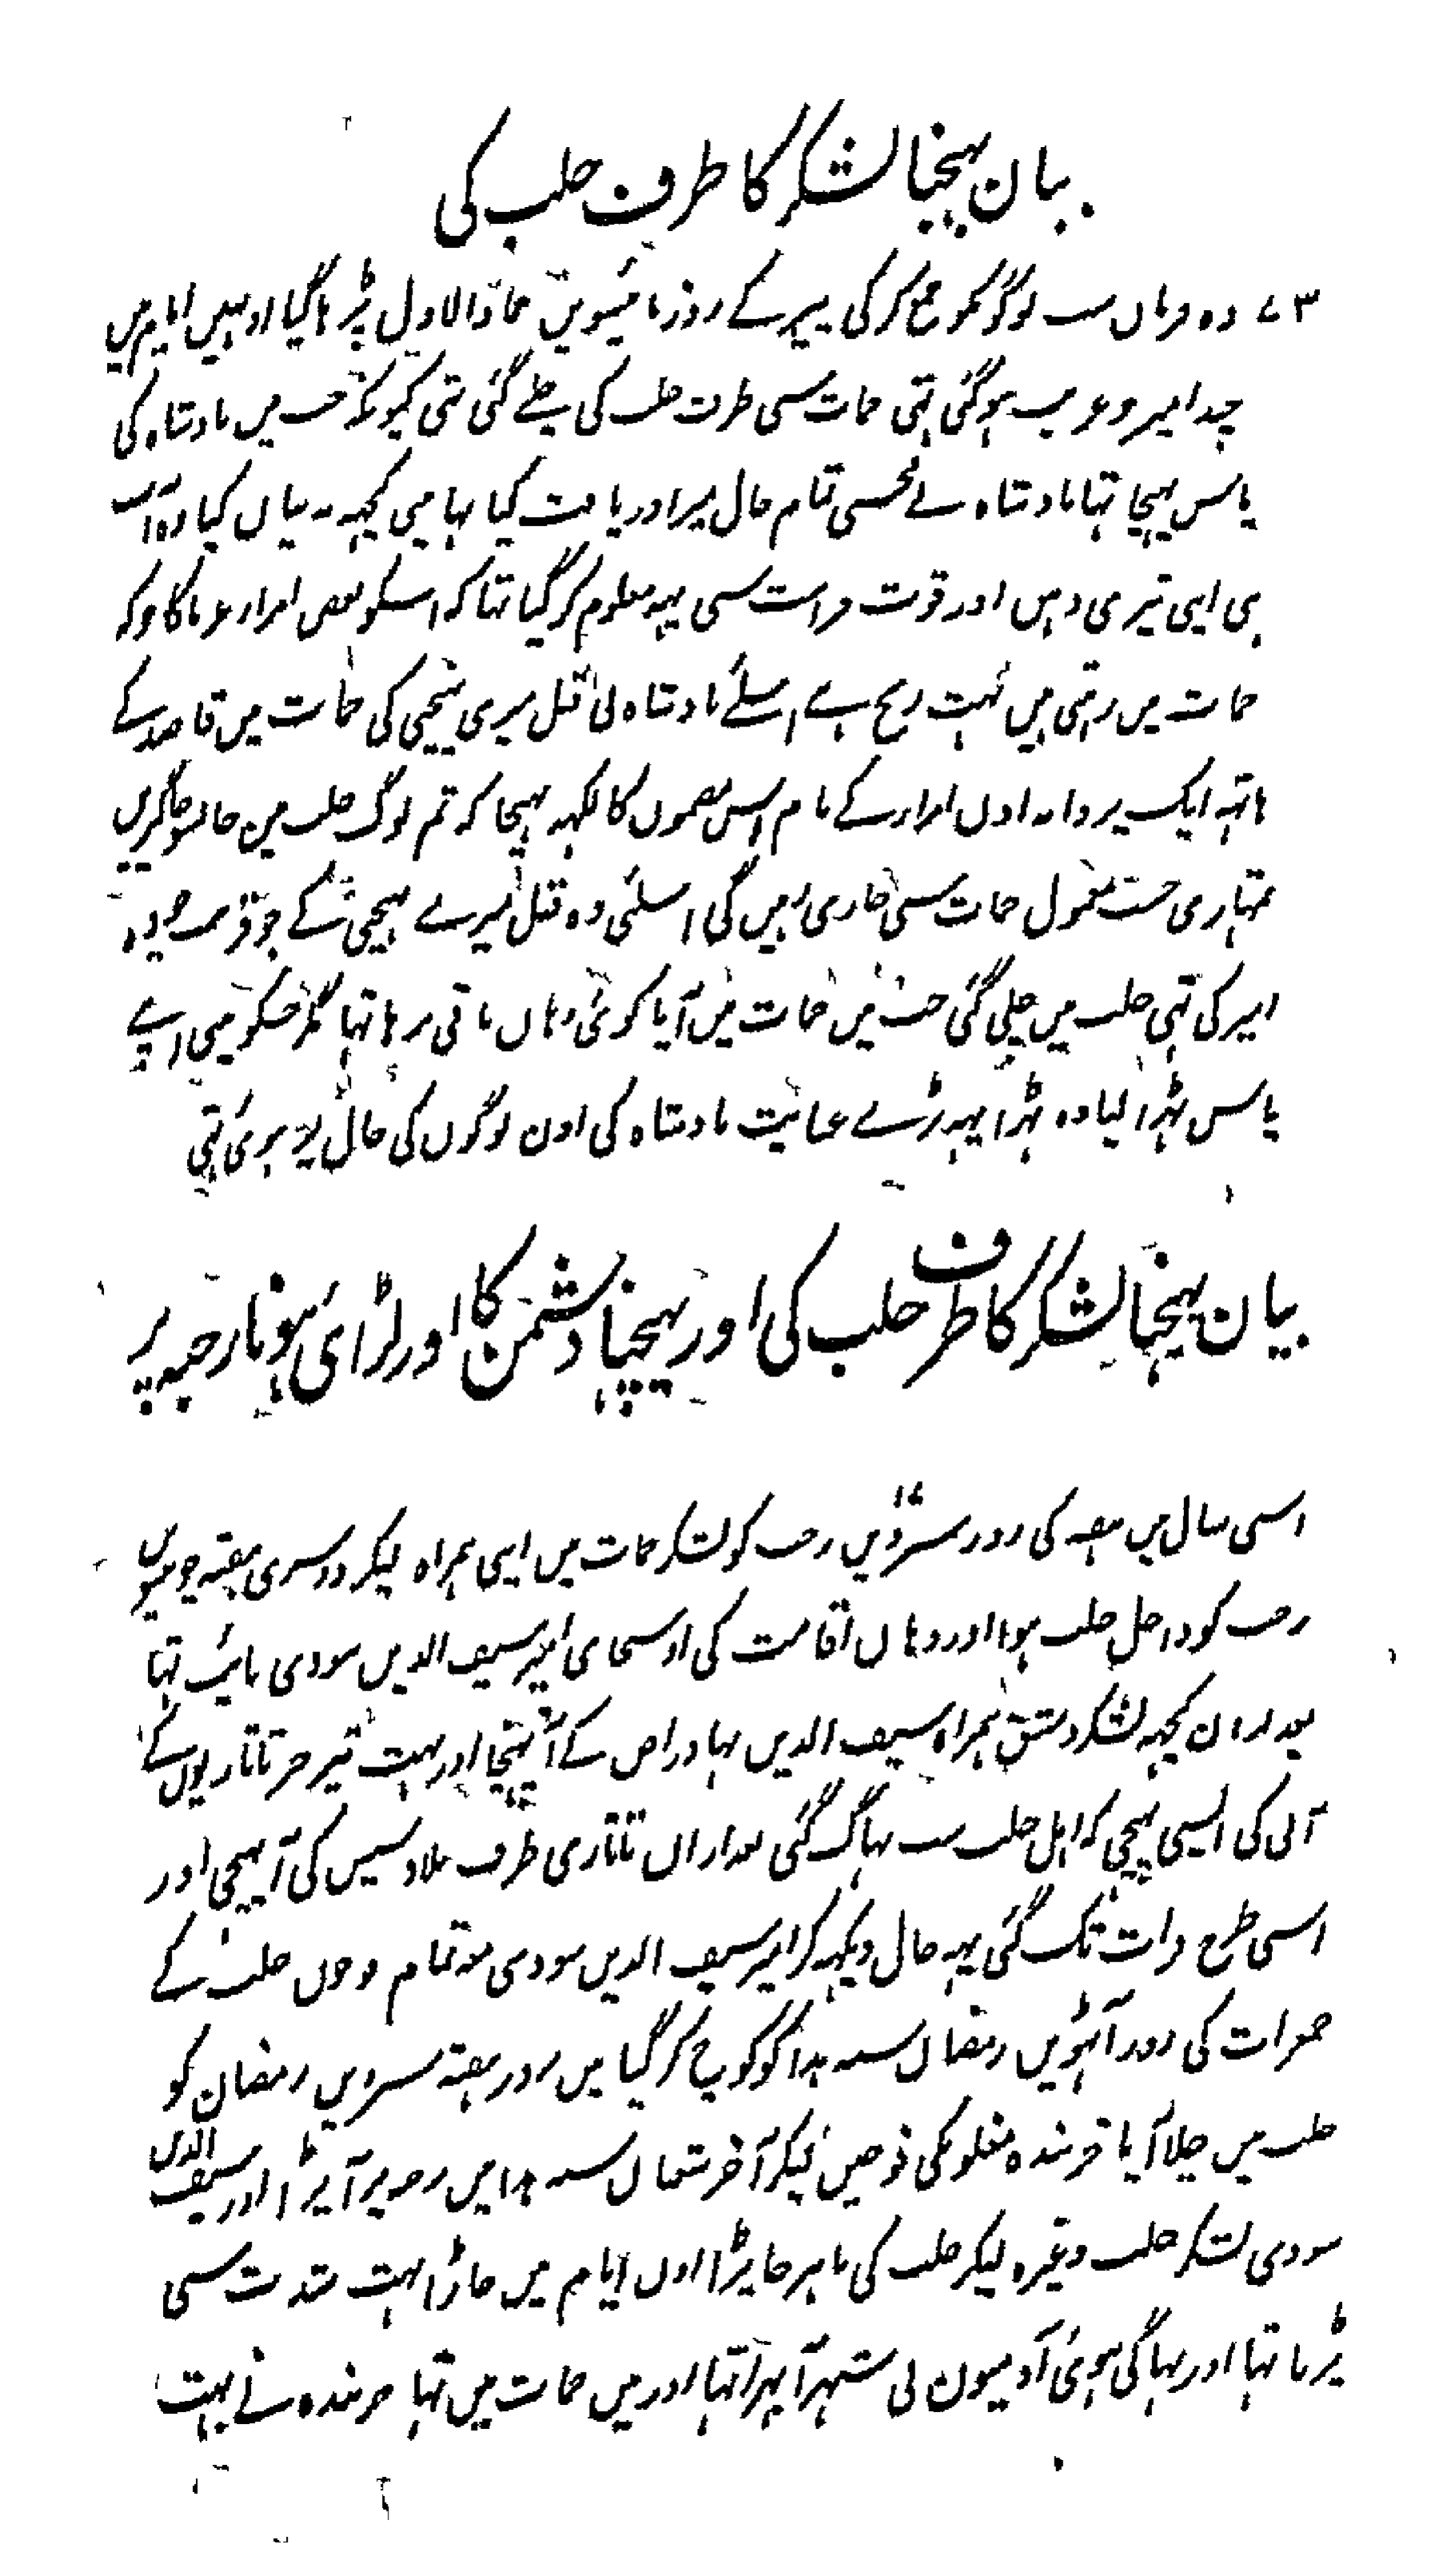 بیان پہنچنا لشکر کا طرف حلب کی
۷۳ وہ فرمان سب لوگوں کو جمع کر کی پیر کے روز بائیسویں جماد الاول پڑہا گیا اونہیں ایام میں
چند امیر و غریب ہو گئی تہی حمات سی طرف حلب کی چلے گئی تہی کیونکہ جب میں بادشاہ کی
پاس پہنچا تہا بادشاہ نے مجسی تمام حال میرا دریافت کیا تہا میں کچہہ نہ بیان کیا وہ آپ
ہی اپنی تیزی ذہن اور قوت فراست سی یہہ معلوم کر گیا تہا کہ اسکو بعض امراء کا جو کہ
حمات میں رہتی ہیں بہت رنج ہے اسلئے بادشاہ نی قبل میری پہنچی کی حمات میں قاصد کے
ہاتہہ ایک پروانہ اون امراء کے نام اس مضمون کا لکہہ بہیجا کہ تم لوگ حلب میں جا
تمہاری حسب معمول حمات سی جاری رہیں گی اسلئی وہ قبل میرے پہنچی کے جو
امیر کی تہی حلب میں چلی گئی جب میں حمات میں آیا کوئی وہاں باقی نہ رہا تہا مگر جسکو میں اپنے
پاس ٹہرا لیا وہ ٹہرا یہہ بڑے عنایت بادشاہ کی اون لوگوں کی حال پر ہوئی تہی
بیان پہنچنا لشکر کا طرف حلب کی اور پہنچنا دشمن کا اور لڑائی ہونا رحبہ پر
اسی سال میں ہفتہ کی روز سترویں رجب کو لشکر حمات میں اپنی ہمراہ لیکر دوسری ہفتہ چوبیسویں
رجب کو داخل حلب ہوا اور وہاں اقامت کی اوس جای امیر سیف الدین سودی نایب تہا
بعد ازان کچہہ لشکر دمشق ہمراہ سیف الدین بہادراص کے آ پہنچا اور بہت خبر تاتاریوں کے
آنی کی ایسی پہنچی کہ اہل حلب سب بہاگ گئی بعد ازاں تاتاری طرف بلاد سیس کی آ پہنچی اور
اسی طرح فرات تک گئی یہہ حال دیکہہ کر امیر سیف الدین سودی مع تمام فوجوں حلب کے
جمعرات کی روز آٹہویں رمضان سنہ ہذا کو کوچ کر گیا میں روز ہفتہ سترویں رمضان کو
حلب میں چلا آیا خربندہ مغلوں کی فوجیں لیکر آخر شعبان سنہ ہذا میں رحبہ پر آ پڑا اور سیف الدین
سودی لشکر حلب وغیرہ لیکر حلب کی باہر جا پڑا اون ایام میں جاڑا بہت شدت سی
پڑتا تہا اور بہاگی ہوئی آدمیون نی شہر آ بہرا تہا اور میں حمات میں تہا خربندہ نے بہت